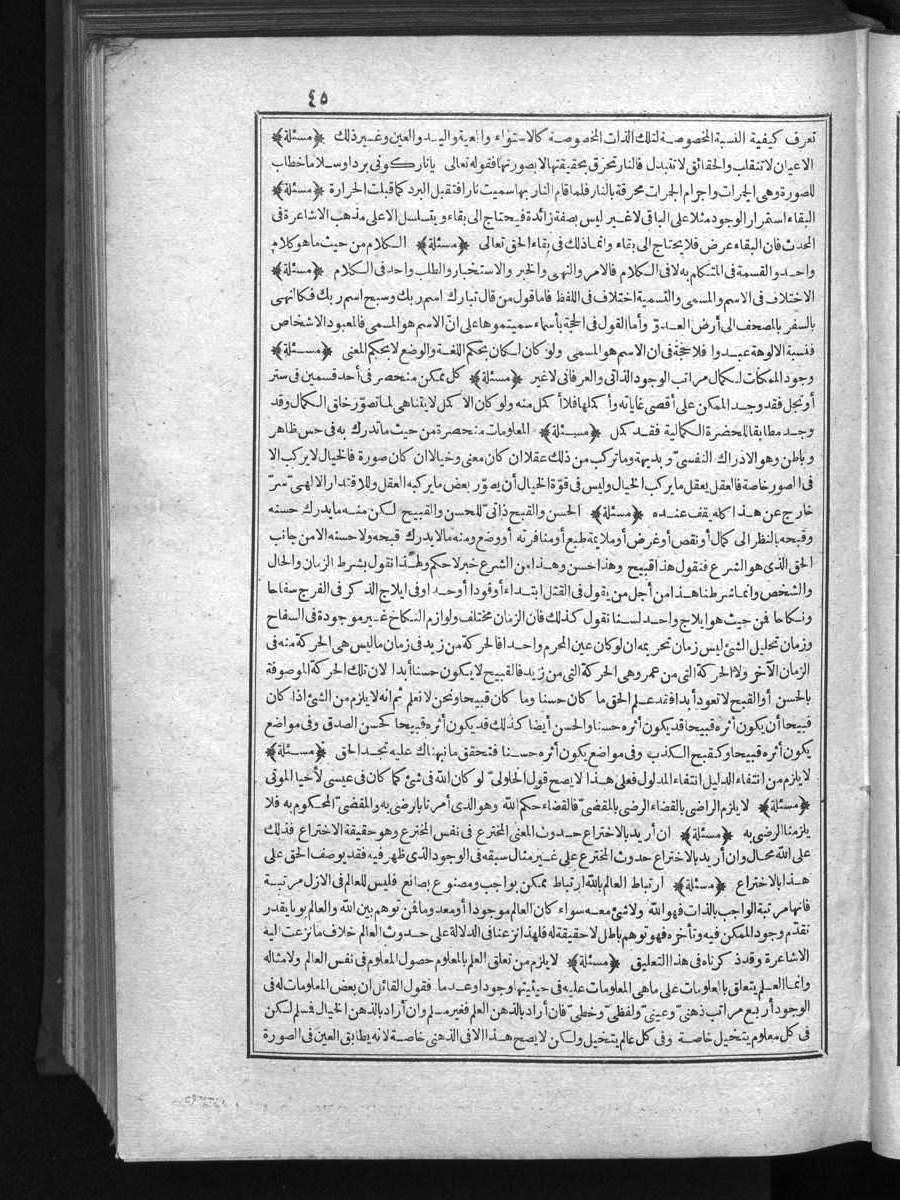 ٤٥
تعرف كيفية النسبة المخصوصة لتلك الذات المخصوصة كالاستواء والمعية واليد والعين وغير ذلك ﴿مسئلة﴾
الاعيان لا تنقلب والحقائق لا تتبدل فالنار تحرق بحقيقتها لا بصورتها فقوله تعالى يا نار كونى بردا وسلاما خطاب
للصورة وهى الجمرات واجرام الجمرات محرقة بالنار فلما قام النار بها سميت نارا فتقبل البرد كما قبلت الحرارة ﴿مسئلة﴾
البقاء استمرار الوجود مثلا على الباقى لا غير ليس بصفة زائدة فيحتاج الى بقاء ويتسلسل الا على مذهب الاشاعرة فى
المحدث فان البقاء عرض فلا يحتاج الى بقاء وانما ذلك فى بقاء الحق تعالى ﴿مسئلة﴾ الكلام من حيث ما هو كلام
واحد والقسمة فى المتكلم به لا فى الكلام فالامر والنهى والخبر والاستخبار والطلب واحد فى الكلام ﴿مسئلة﴾
الاختلاف فى الاسم والمسمى والتسمية اختلاف فى اللفظ فاما قول من قال تبارك اسم ربك وسبح اسم ربك فكالنهى
بالسفر بالمصحف الى أرض العدوّ وأما القول فى الحجة بأسماء سميتموها على انّ الاسم هو المسمى فالمعبود الاشخاص
فنسبة الالوهة عبدوا فلا حجة فى ان الاسم هو المسمى ولو كان لكان بحكم اللغة والوضع لا بحكم المعنى ﴿مسئلة﴾
وجود الممكنات لكمال مراتب الوجود الذاتى والعرفانى لا غير ﴿مسئلة﴾ كل ممكن منحصر فى أحد قسمين فى ستر
أو تجل فقد وجد الممكن على أقصى غاياته وأكملها فلا أكمل منه ولو كان الاكمل لا يتناهى لما تصوّر خلق الكمال وقد
وجد مطابقا للحضرة الكمالية فقد كمل ﴿مسئلة﴾ المعلومات منحصرة من حيث ما تدرك به فى حس ظاهر
وباطن وهو الادراك النفسىّ وبديهة وما تركب من ذلك عقلا ان كان معنى وخيالا ان كان صورة فالخيال لا يركب الا
فى الصور خاصة فالعقل يعقل ما يركب الخيال وليس فى قوّة الخيال أن يصوّر بعض ما يركبه العقل وللاقتدار الالهىّ سرّ
خارج عن هذا كله يقف عنده ﴿مسئلة﴾ الحسن والقبح ذاتىّ للحسن والقبيح لكن منه ما يدرك حسنه
وقبحه بالنظر الى كمال أو نقص أو غرض أو ملايمة طبع أو منافرته أو وضع ومنه ما لا يدرك قبحه ولا حسنه الا من جانب
الحق الذى هو الشرع فنقول هذا قبيح وهذا حسن وهذا من الشرع خبر لا حكم ولهذا نقول بشرط الزمان والحال
والشخص وانما شرطنا هذا من أجل من يقول فى القتل ابتداء أو قودا أو حدا وفى ايلاج الذكر فى الفرج سفاحا
ونكاحا فمن حيث هو ايلاج واحد لسنا نقول كذلك فان الزمان مختلف ولوازم النكاح غير موجودة فى السفاح
وزمان تحليل الشئ ليس زمان تحريمه ان لو كان عين المحرم واحدا فالحركة من زيد فى زمان ما ليس هى الحركة منه فى
الزمان الآخر ولا الحركة التى من عمرو هى الحركة التى من زيد فالقبيح لا يكون حسنا أبدا لان تلك الحركة الموصوفة
بالحسن أو القبح لا تعود أبدا فقد علم الحق ما كان حسنا وما كان قبيحا ونحن لا نعلم ثم انه لا يلزم من الشئ اذا كان
قبيحا أن يكون أثره قبيحا قد يكون أثره حسنا والحسن أيضا كذلك قد يكون أثره قبيحا كحسن الصدق وفى مواضع
يكون أثره قبيحا وكقبح الكذب وفى مواضع يكون أثره حسنا فتحقق ما نبهناك عليه تجد الحق ﴿مسئلة﴾
لا يلزم من انتفاء الدليل انتفاء المدلول فعلى هذا لا يصح قول الحلولىّ لو كان الله فى شئ كما كان فى عيسى لأحيا الموتى
﴿مسئلة﴾ لا يلزم الراضى بالقضاء الرضى بالمقضىّ فالقضاء حكم الله وهو الذى أمرنا بالرضى به والمقضىّ المحكوم به فلا
يلزمنا الرضى به ﴿مسئلة﴾ ان أريد بالاختراع حدوث المعنى المخترع فى نفس المخترع وهو حقيقة الاختراع فذلك
على الله محال وان أريد بالاختراع حدوث المخترع على غير مثال سبقه فى الوجود الذى ظهر فيه فقد يوصف الحق على
هذا بالاختراع ﴿مسئلة﴾ ارتباط العالم بالله ارتباط ممكن بواجب ومصنوع بصانع فليس للعالم فى الازل مرتبة
فانها مرتبة الواجب بالذات فهو الله ولا شئ معه سواء كان العالم موجودا أو معدوما فمن توهم بين الله والعالم بونا يقدر
تقدّم وجود الممكن فيه وتأخره فهو توهم باطل لا حقيقة له فلهذا نزعنا فى الدلالة على حدوث العالم خلاف ما نزعت اليه
الاشاعرة وقد ذكرناه فى هذا التعليق ﴿مسئلة﴾ لا يلزم من تعلق العلم بالمعلوم حصول المعلوم فى نفس العالم ولا مثاله
وانما العلم يتعلق بالمعلومات على ما هى المعلومات عليه فى حيثيتها وجودا وعدما فقول القائل ان بعض المعلومات له فى
الوجود أربع مراتب ذهنىّ وعينىّ ولفظىّ وخطىّ فان أراد بالذهن العلم فغير مسلم وان أراد بالذهن الخيال فسلم لكن
فى كل معلوم يتخيل خاصة وفى كل عالم يتخيل ولكن لا يصح هذا الا فى الذهنى خاصة لانه يطابق العين فى الصورة